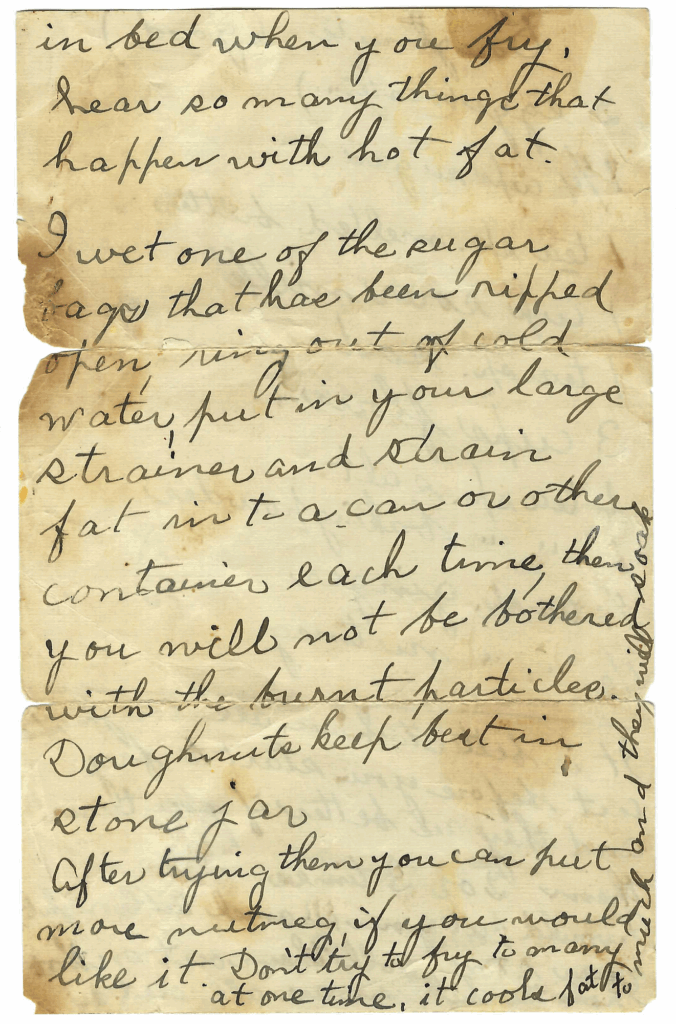 in bed when you fry,
hear so many things that
happen with hot fat.
I wet one of the sugar
bags that has been ripped
open, ring out of cold
water, put in your large
strainer and strain
fat in to a can or other
container each time, then
you will not be bothered
with the burnt particles.
Doughnuts keep best in
stone jar
After trying them you can put
more nutmeg, if you would
like it. Don't try to fry to many
at one time, it cools fat to
much and they will soak